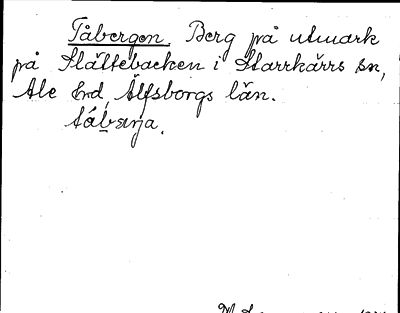 Tåbergen. Berg på utmark
på Slättebacken i Starrkärrs sn,
Ale Erd, Älfsborgs län.